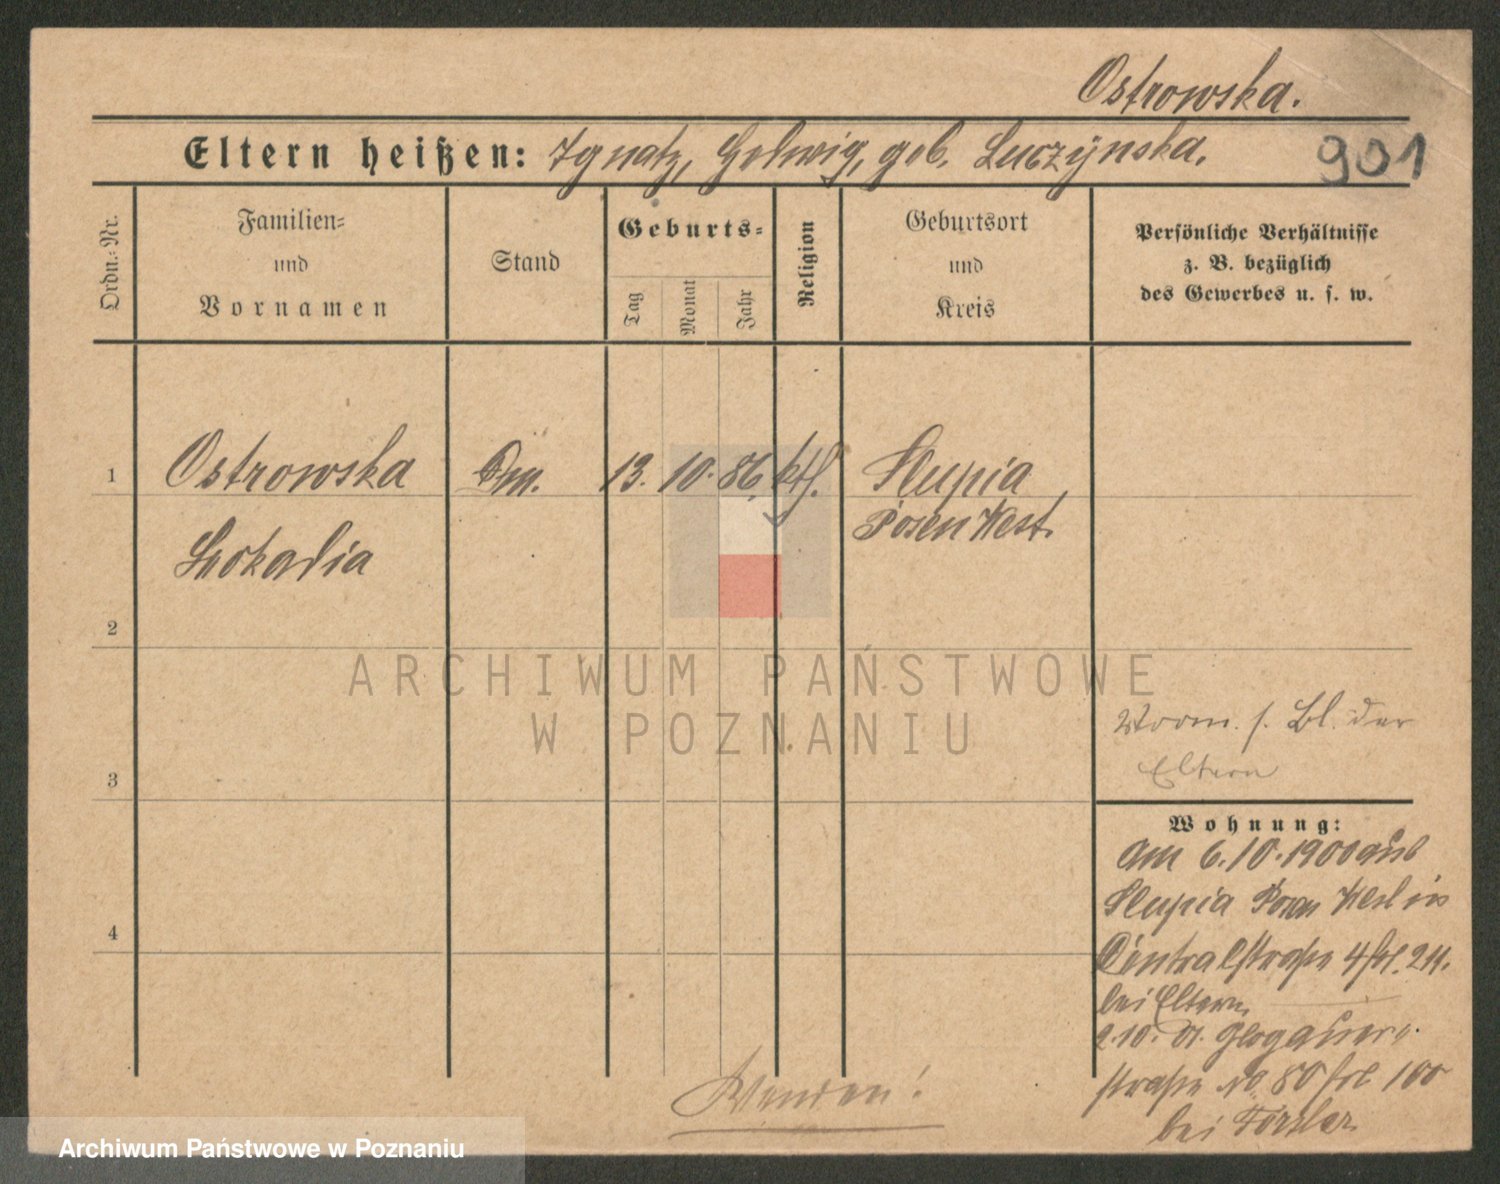 Ostrowska.
Eltern heißen: Ignatz, Hedwig, geb. Luczynska.
901
Ordn.-Nr.
Familien-
und
Vornamen
Stand
Geburts-
Tag
Monat
Jahr
Religion
Geburtsort
und
Kreis
Persönliche Verhältnisse
z. B. bezüglich
des Gewerbes u. s. w.
1
Ostrowska
13. 10. 86. kth.
Slupia
Leokadia
Posen West.
2
ARCHIWUM PAŃSTWOWE
W POZNANIU
s. Bl. der
Eltern
3
Wohnung:
am 6.10.1900 aus
Slupia Posen West in
4
Centralstraße 4
bei Eltern
2.10. 01. Glogauer-
straße No 80 100
bei
Wenden!
Archiwum Państwowe w Poznaniu